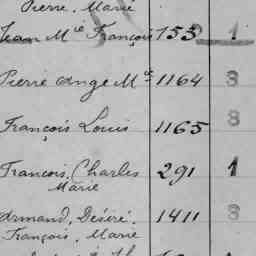 Pierre, Marie
Jean Mie François 153 1
Pierre Ange Mie 1164 8
François Louis 1165 8
François, Charles 291 1
Marie
Armand, Désiré. 1411 8
François, Marie